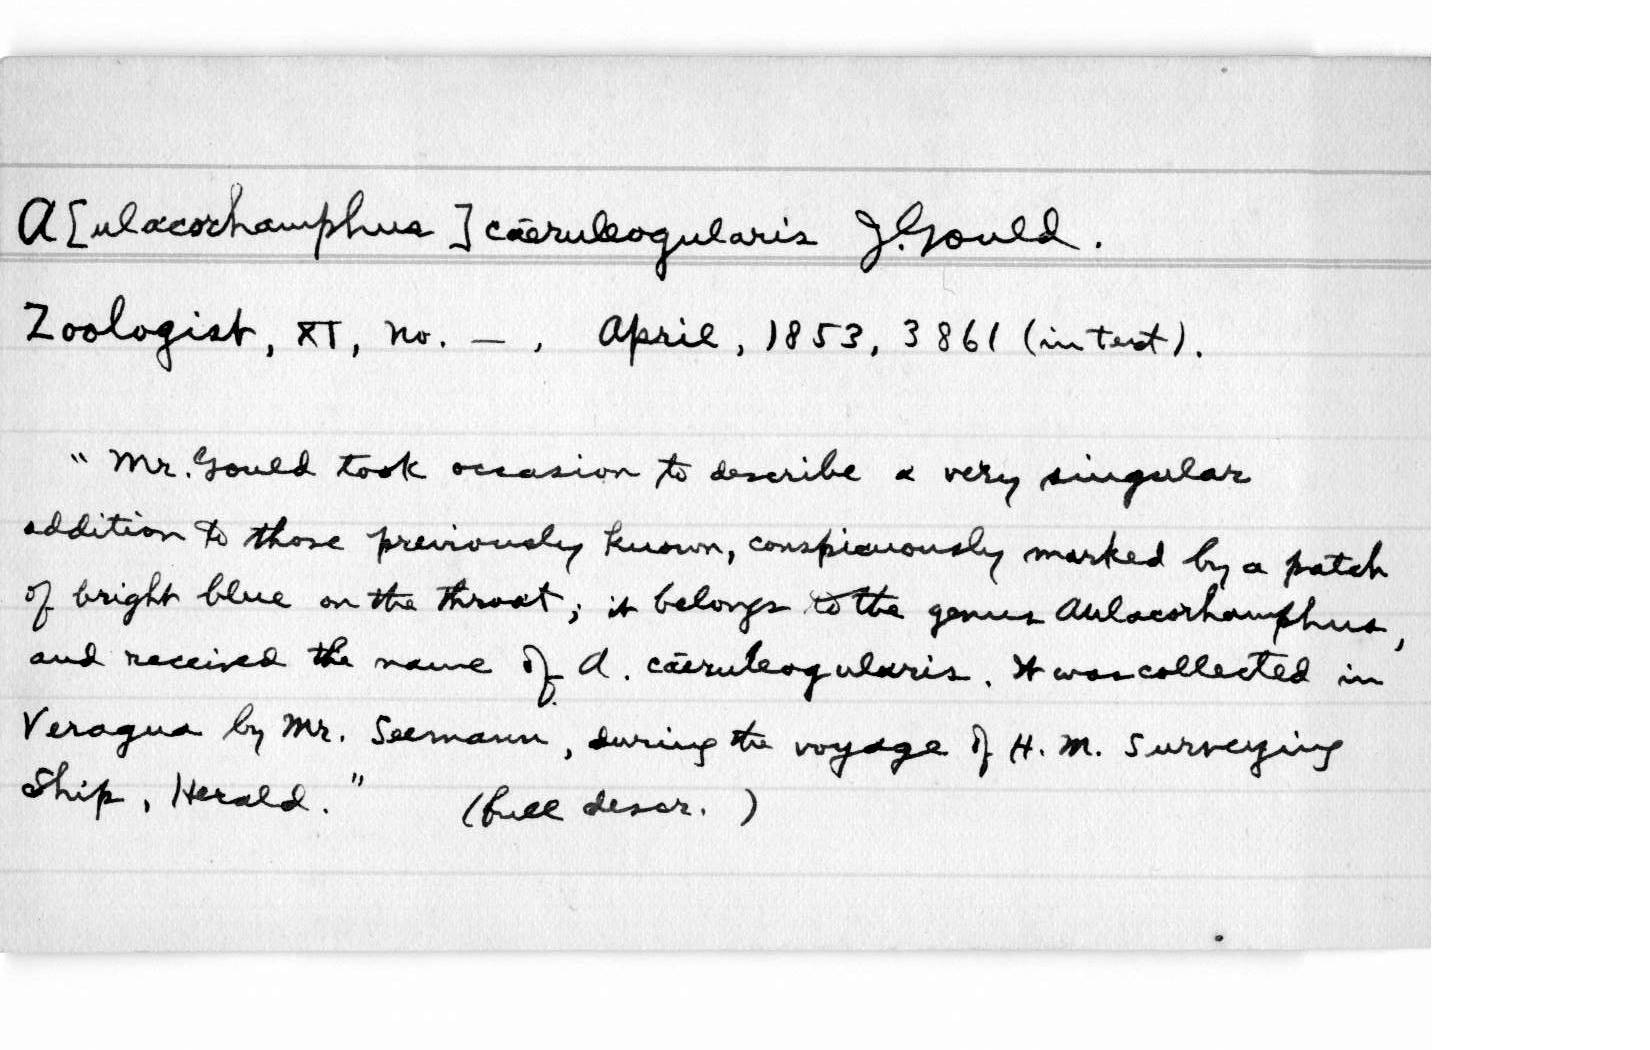 A[ulacorhamphus] cāeruleogularis J. Gould.
Zoologist, XI, no. — , April, 1853, 3861 (in text).
"Mr. Gould took occasion to describe a very singular
addition to those previously known, conspicuously marked by a patch
of bright blue on the throat; it belongs to the genus Aulacorhamphus,
and received the name of A. cāeruleogularis. It was collected in
Veragua by Mr. Seemann, during the voyage of H. M. Surveying
Ship, Herald." (full descr. )